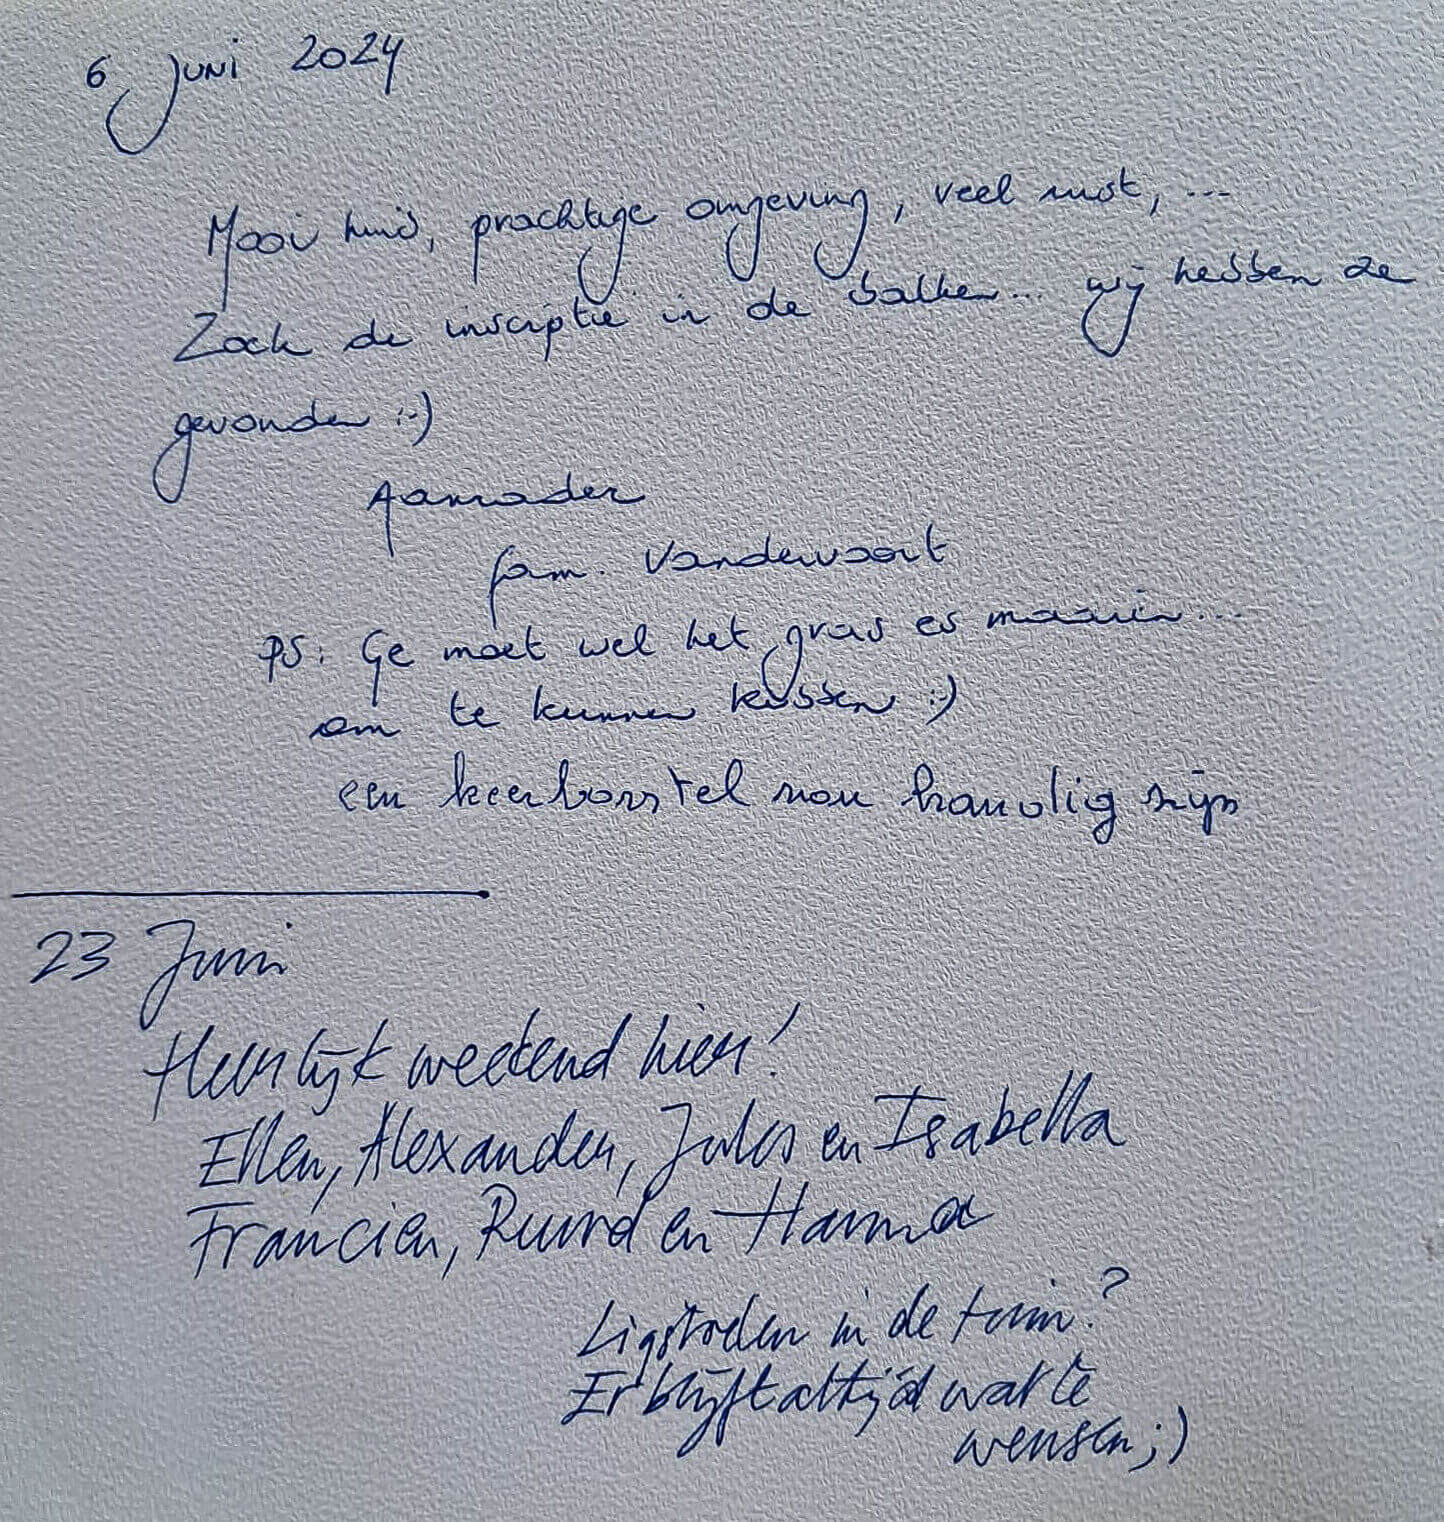 6 Juni 2024
Mooi huis, prachtige omgeving, veel rust, ...
Zoek de inscriptie in de balken... wij hebben ze
gevonden :-)
Aanrader
fam. Vandervoort
PS: Ge moet wel het gras es maaien...
om te kunnen kubben :-)
een keerborstel zou handig zijn
23 Juni
Heerlijk weekend hier!
Ellen, Alexander, Jules en Isabella
Francien, Ruurd en Hanna
Ligstoelen in de tuin?
Er blijft altijd wat te
wensen ;)